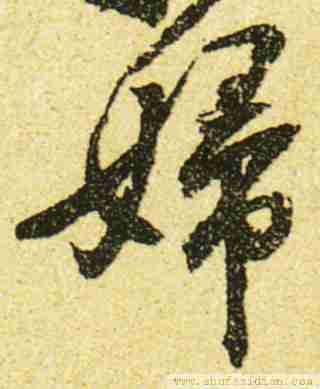 婦
www.shufazidian.com